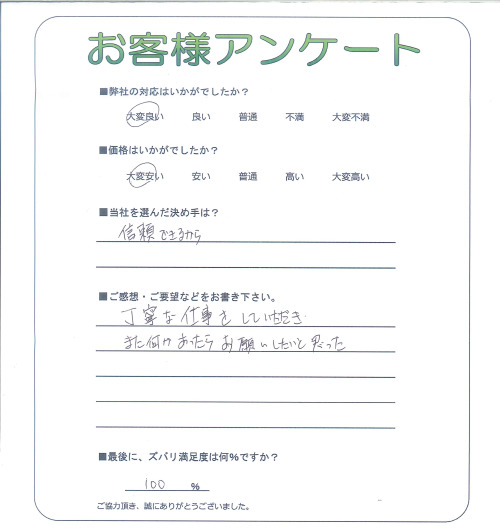 お客様アンケート
■弊社の対応はいかがでしたか？
大変良い 良い 普通 不満 大変不満
■価格はいかがでしたか？
大変安い 安い 普通 高い 大変高い
■当社を選んだ決め手は？
信頼できるから
■ご感想・ご要望などをお書き下さい。
丁寧な仕事をしていただき
また何かあったらお願いしたいと思った
■最後に、ズバリ満足度は何%ですか？
100 %
ご協力頂き、誠にありがとうございました。